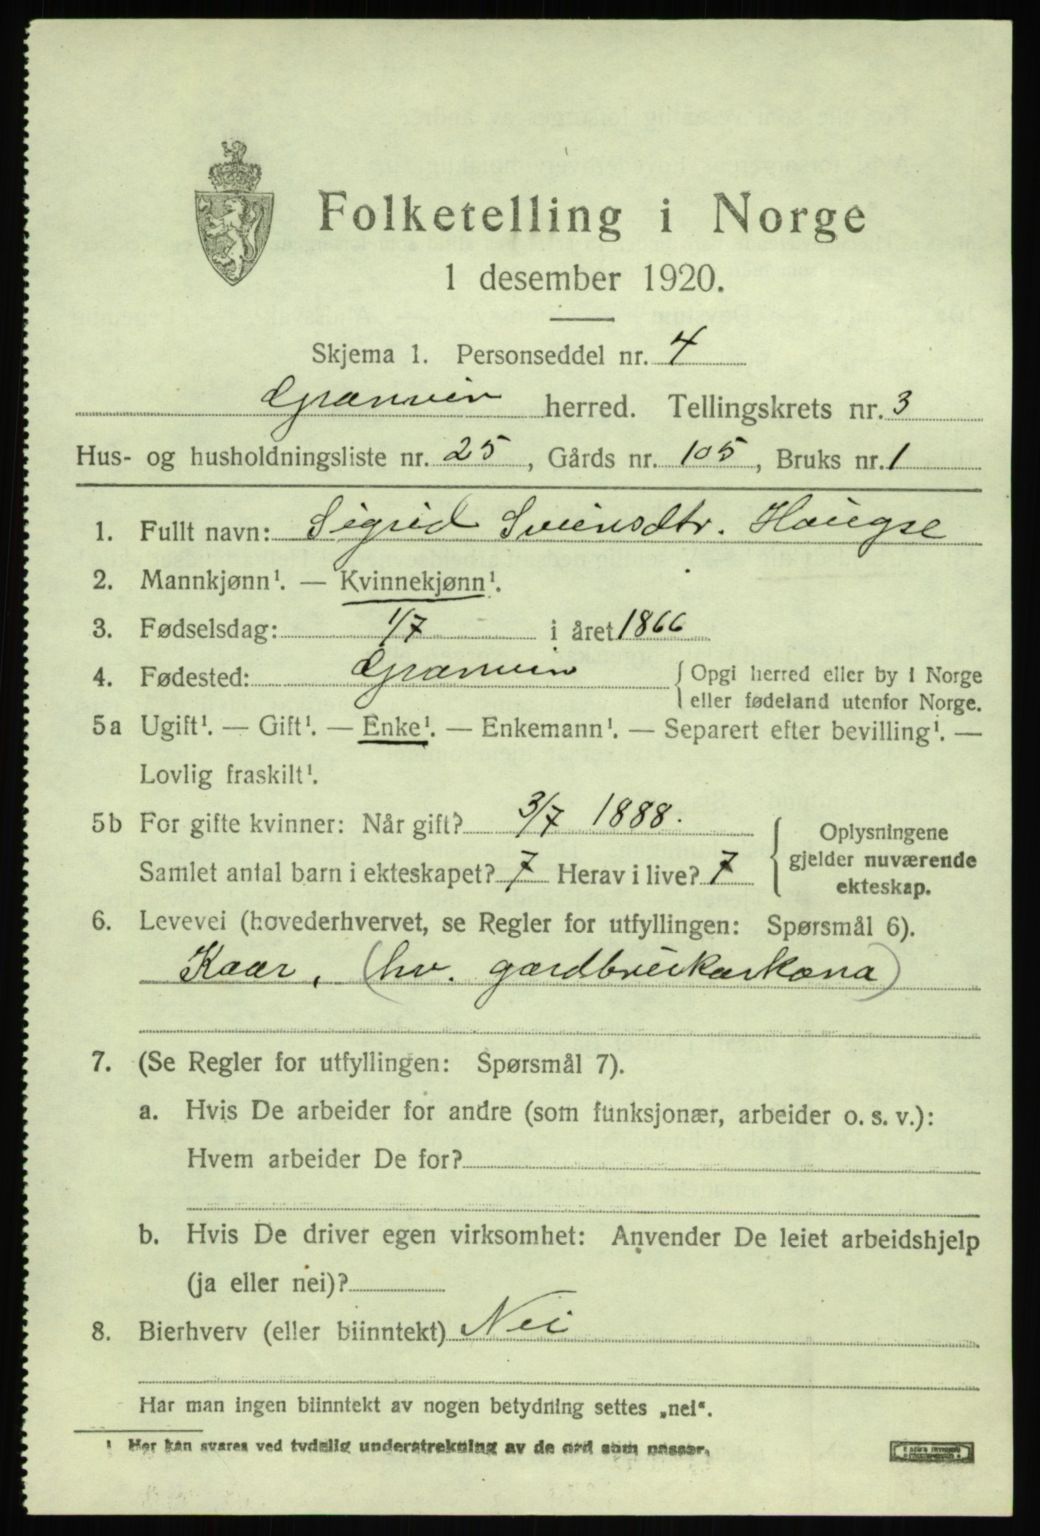 Folketelling i Norge
1 desember 1920.
Skjema 1. Personseddel nr. 4
Granvin herred. Tellingskrets nr. 3
Hus- og husholdningsliste nr. 25, Gårds nr. 105, Bruks nr. 1
1. Fullt navn: Sigrid Sveinsdtr. Haugse
2. Mannkjønn¹. — Kvinnekjønn¹.
3. Fødselsdag: 1/7 i året 1866
4. Fødested: Granvin { Opgi herred eller by i Norge
eller fødeland utenfor Norge.
5a Ugift¹. — Gift¹. — Enke¹. — Enkemann¹. — Separert efter bevilling¹. —
Lovlig fraskilt¹.
5b For gifte kvinner: Når gift? 3/7 1888.
Samlet antal barn i ekteskapet? 7 Herav i live? 7
{ Oplysningene
gjelder nuværende
ekteskap.
6. Levevei (hovederhvervet, se Regler for utfyllingen: Spørsmål 6).
Kaar, (hv. gardbrukarkona)
7. (Se Regler for utfyllingen: Spørsmål 7).
a. Hvis De arbeider for andre (som funksjonær, arbeider o. s. v.):
Hvem arbeider De for?
b. Hvis De driver egen virksomhet: Anvender De leiet arbeidshjelp
(ja eller nei)?
8. Bierhverv (eller biinntekt) Nei
Har man ingen biinntekt av nogen betydning settes „nei“.
¹ Her kan svares ved tydelig understrekning av de ord som passer.